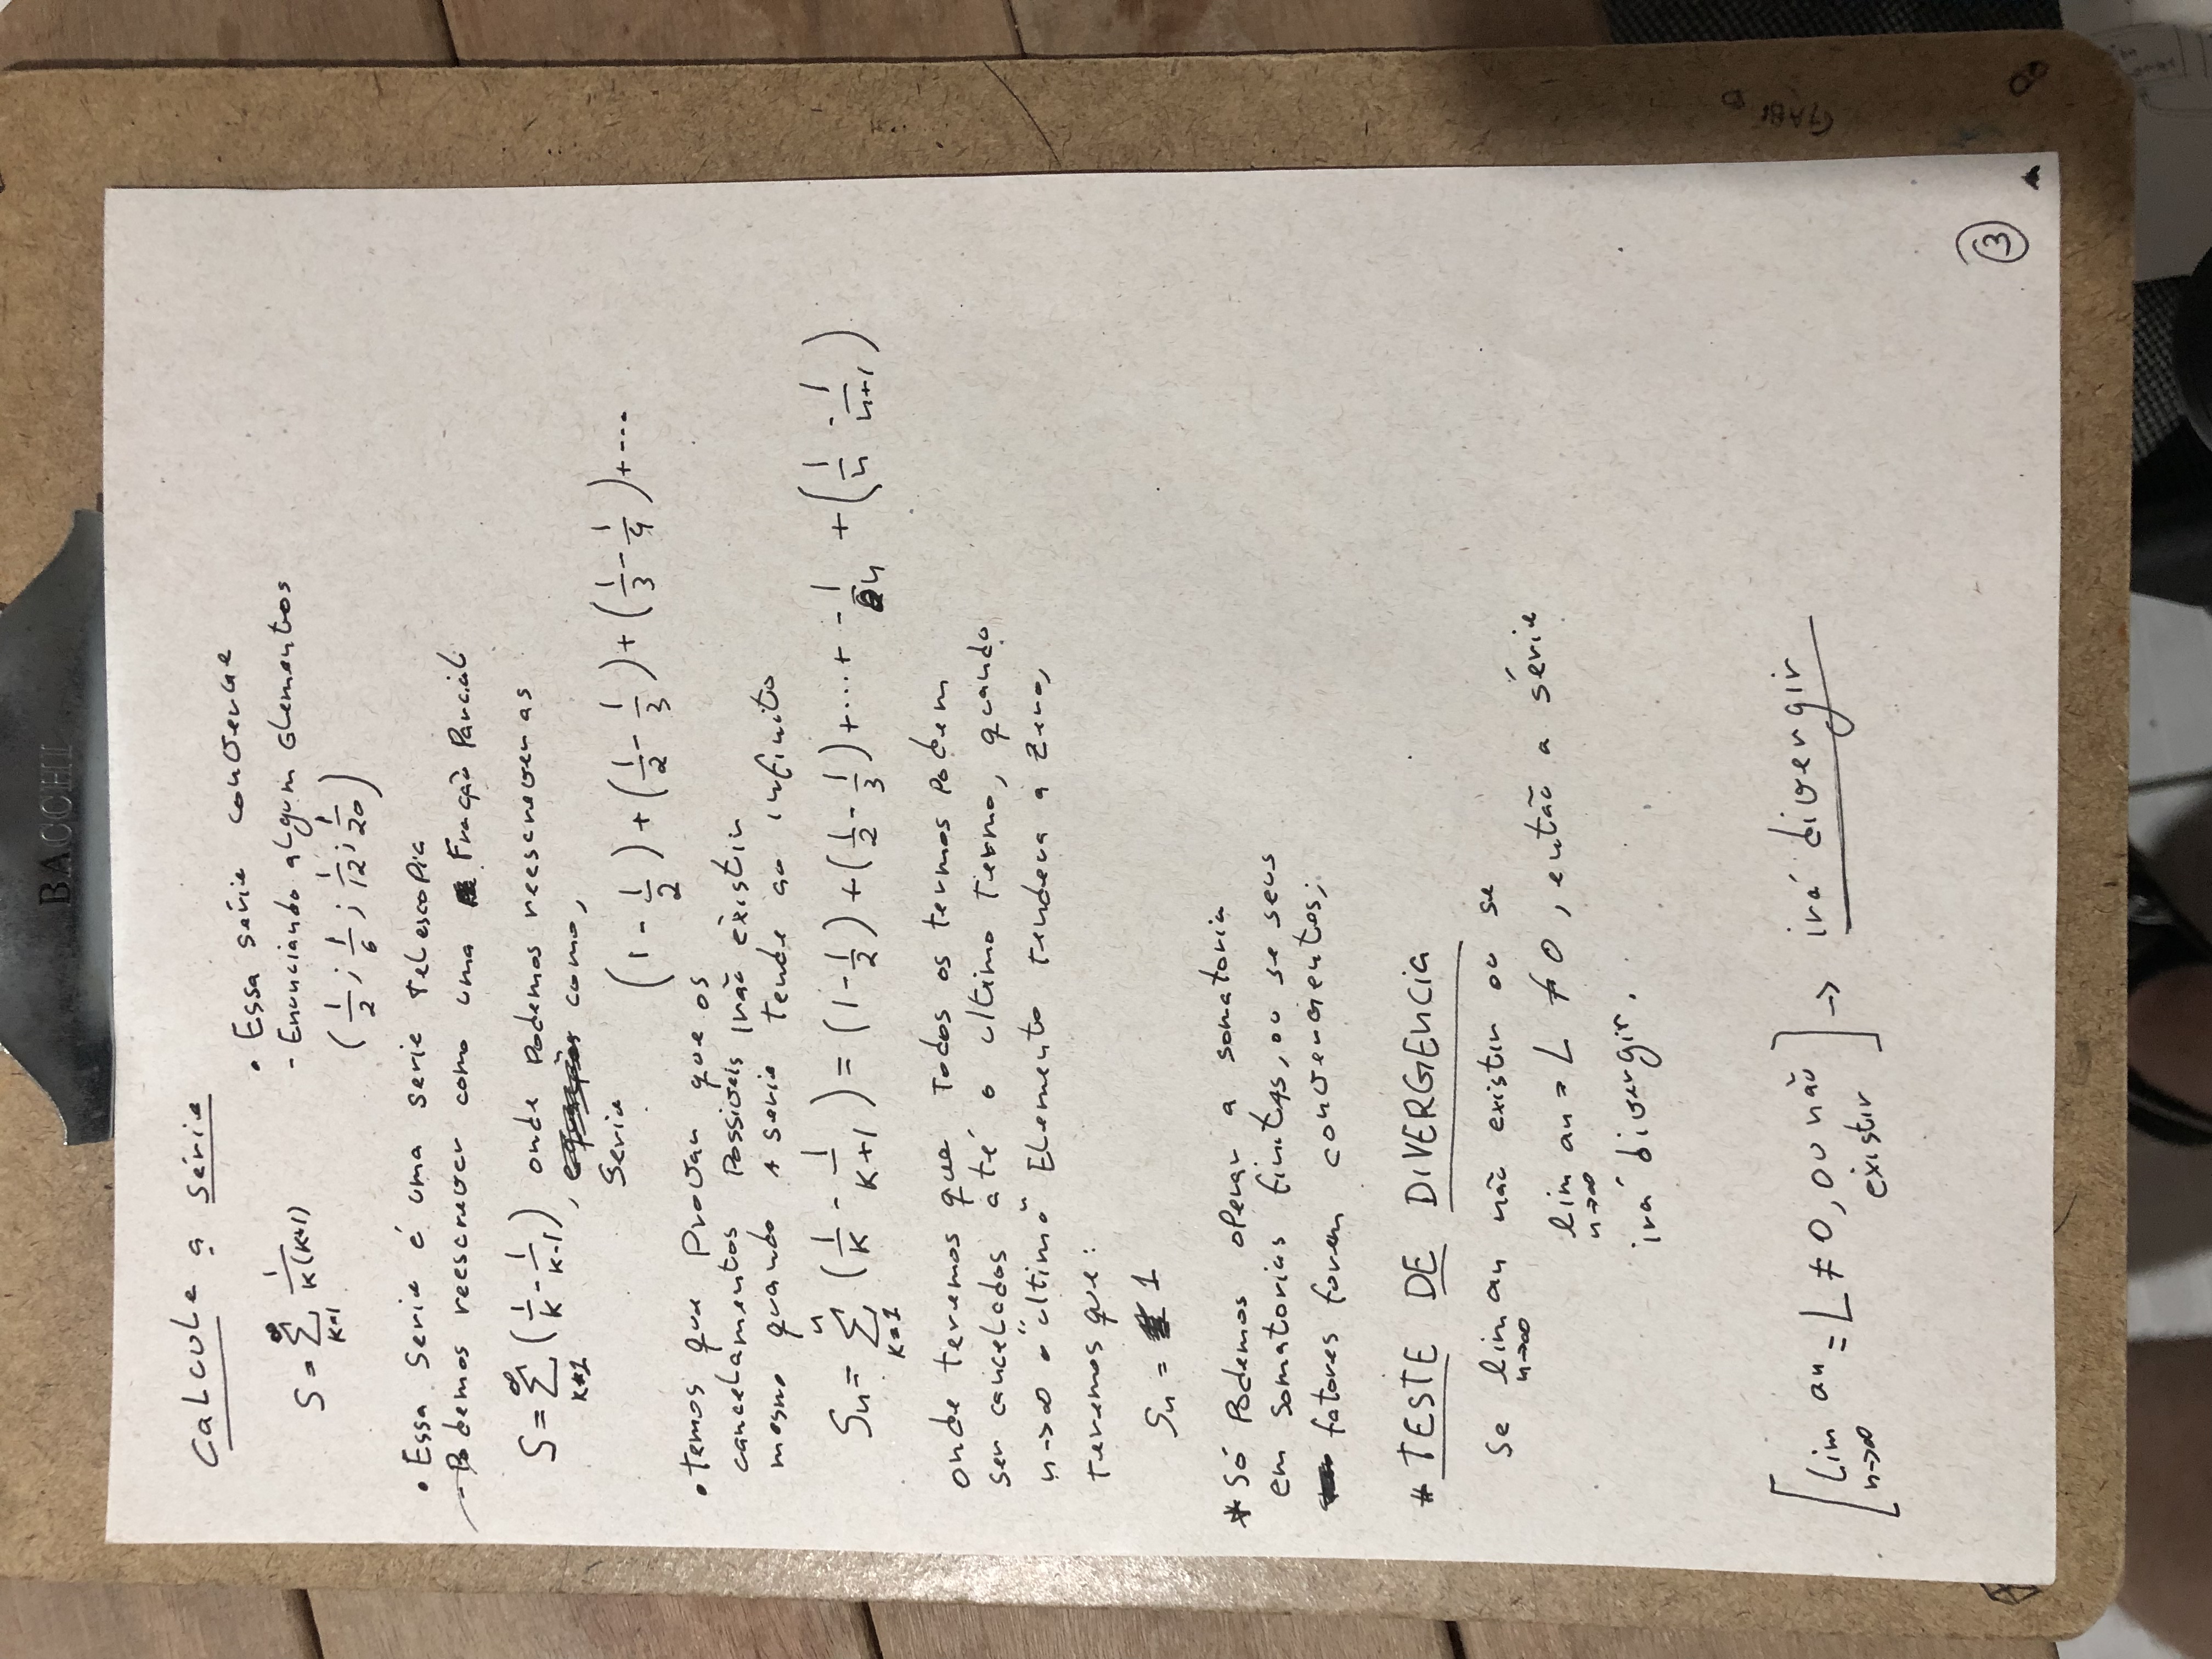 BACCHI
Calcule a série
S = ∑_{k=1}^{∞} 1/(k(k+1))
• Essa série converge
- Enunciando algum Elementos
(1/2 ; 1/6 ; 1/12 ; 1/20)
• Essa Serie é uma serie Telescopia
- Podemos reescrever como uma Fração Parcial
S = ∑_{k=1}^{∞} (1/k - 1/(k-1)), onde podemos reescrever as
como,
Serie
(1 - 1/2) + (1/2 - 1/3) + (1/3 - 1/4) + ....
• temos que Provar que os
cancelamentos Possiveis irão existir
mesmo quando a serie tende ao infinito
Sn = ∑_{k=1}^{n} (1/k - 1/(k+1)) = (1 - 1/2) + (1/2 - 1/3) + ... + -1/n + (1/n - 1/(n+1))
onde teremos que Todos os termos Podem
ser cancelados até o ultimo Termo, quando
n->∞ o "ultimo" Elemento tendera a Zero,
teremos que:
Sn = 1
* Só Podemos operar a somatoria
em somatorias finitas, ou se seus
fatores forem convergentes;
# TESTE DE DIVERGENCIA
Se lim_{n->∞} an não existir ou se
lim_{n->∞} an = L ≠ 0, então a série
irá divergir.
[lim_{n->∞} an = L ≠ 0, ou não existir] -> irá divergir
3
GABI